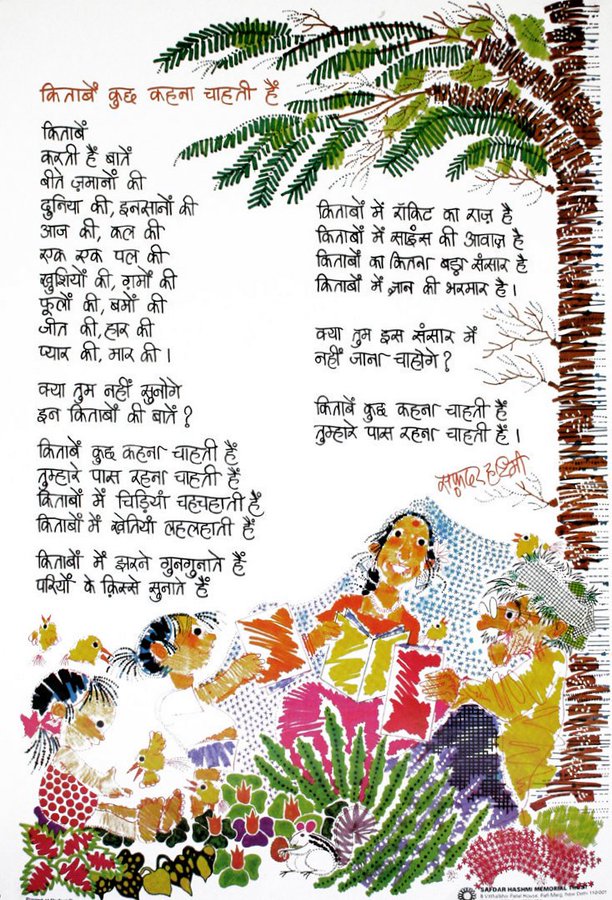 किताबें कुछ कहना चाहती हैं
किताबें
करती हैं बातें
बीते ज़मानों की
दुनिया की, इनसानों की
आज की, कल की
एक एक पल की
ख़ुशियों की, ग़मों की
फूलों की, बमों की
जीत की, हार की
प्यार की, मार की।
क्या तुम नहीं सुनोगे
इन किताबों की बातें?
किताबें कुछ कहना चाहती हैं
तुम्हारे पास रहना चाहती हैं
किताबों में चिड़ियाँ चहचहाती हैं
किताबों में खेतियाँ लहलहाती हैं
किताबों में झरने गुनगुनाते हैं
परियों के क़िस्से सुनाते हैं
किताबों में रॉकिट का राज़ है
किताबों में साइंस की आवाज़ है
किताबों का कितना बड़ा संसार है
किताबों में ज्ञान की भरमार है।
क्या तुम इस संसार में
नहीं जाना चाहोगे?
किताबें कुछ कहना चाहती हैं
तुम्हारे पास रहना चाहती हैं।
सफ़दर हाश्मी
SAFDAR HASHMI MEMORIAL TRUST
8 Vithalbhai Patel House, Rafi Marg, New Delhi 110 001